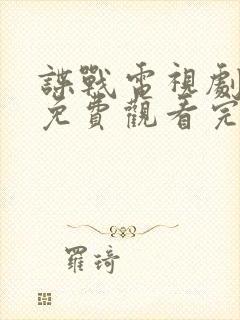 諜戰電視劇
免費觀看完
羅琦